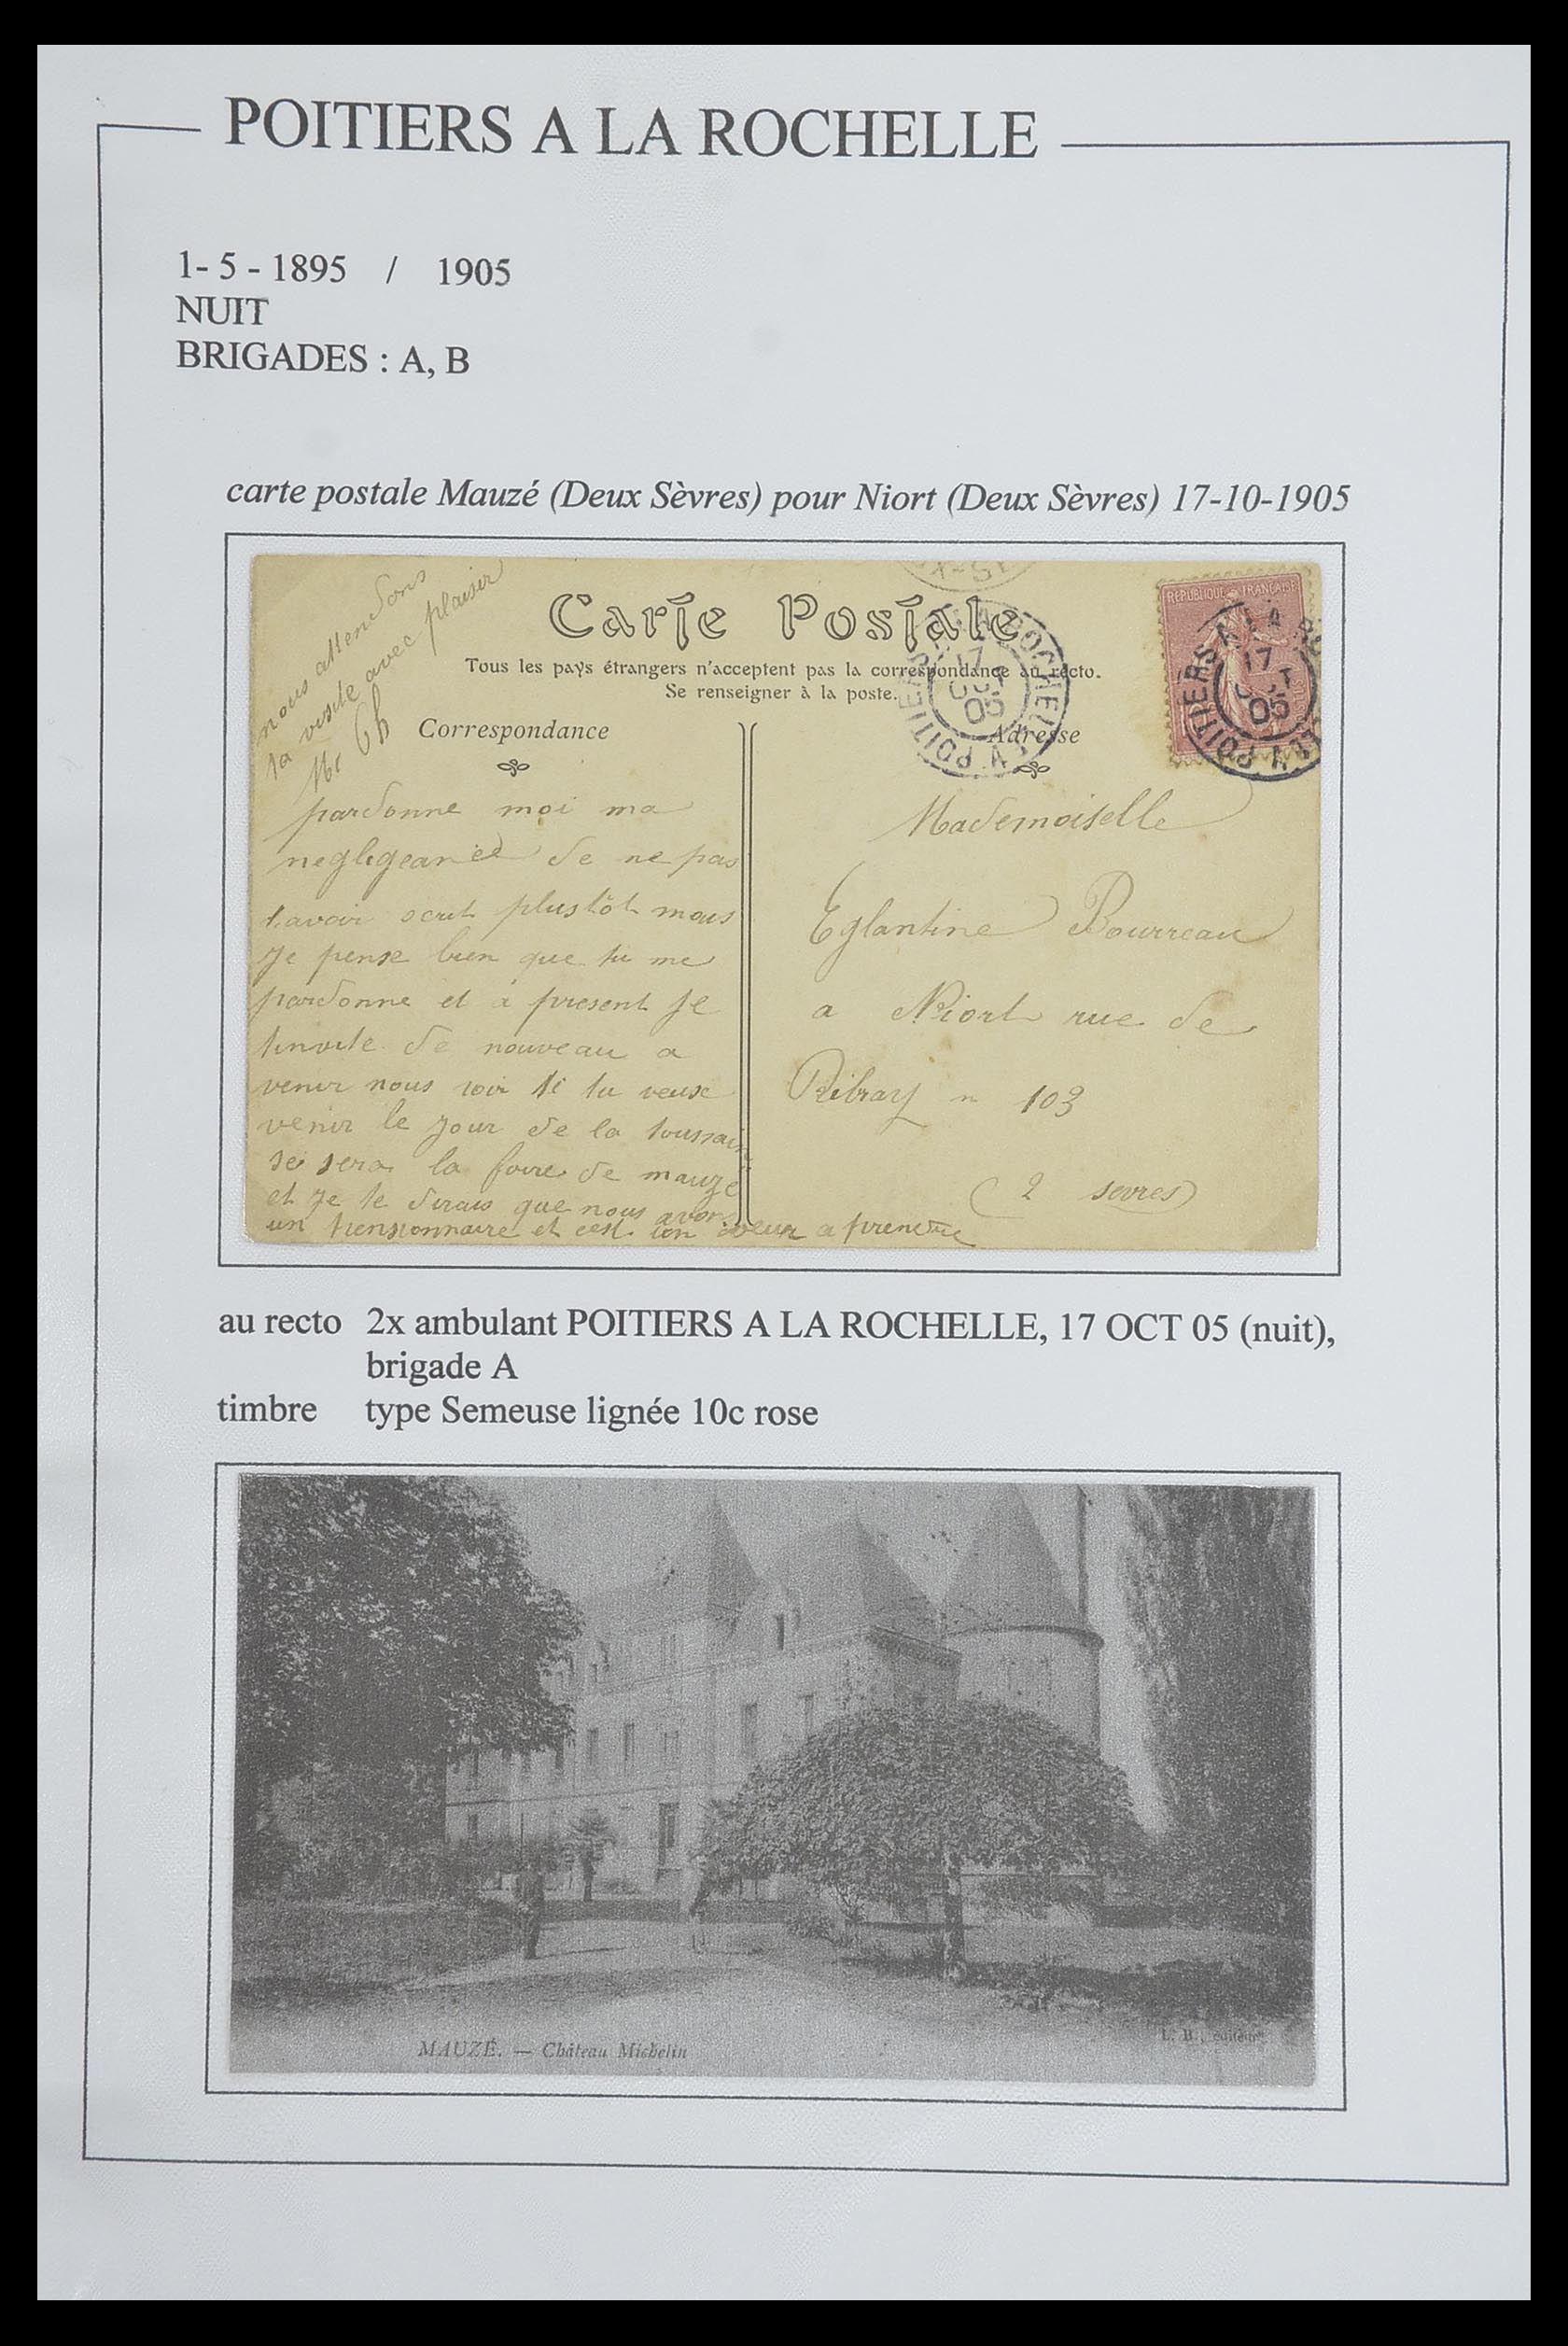 POITIERS A LA ROCHELLE
1- 5 - 1895 / 1905
NUIT
BRIGADES : A, B
carte postale Mauzé (Deux Sèvres) pour Niort (Deux Sèvres) 17-10-1905
nous attendons
ta visite avec plaisir
Carte Postale
Tous les pays étrangers n'acceptent pas la correspondance au recto.
Se renseigner à la poste.
POITIERS A LA ROCHELLE
17
OCT
05
A
REPUBLIQUE FRANÇAISE
POITIERS A LA RO
17
OCT
05
A
Correspondance
Adresse
pardonne moi ma
negligeance de ne pas
tavoir scrit plustôt mais
Je pense bien que tu me
pardonne et a present Je
tinvite de nouveau a
venir nous voir si tu veux
venir le jour de la toussain
se sera la foire de mauze
et Je te dirais que nous avons
un pensionnaire et cest un a prendre
Mademoiselle
Eglantine Bourreau
a Niort rue de
Ribray n 103
(2 sevres)
au recto 2x ambulant POITIERS A LA ROCHELLE, 17 OCT 05 (nuit),
brigade A
timbre type Semeuse lignée 10c rose
MAUZÉ. — Château Michelin
L. B., éditeur